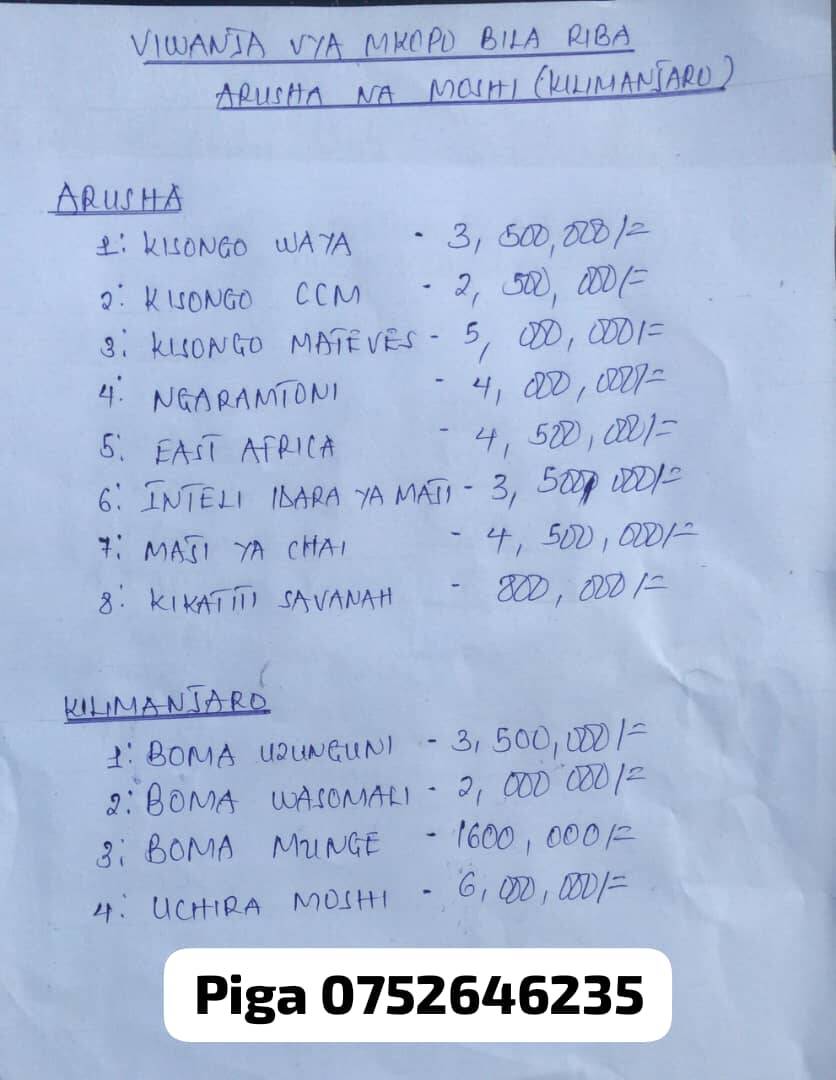 VIWANJA VYA MKOPO BILA RIBA
ARUSHA NA MOSHI (KILIMANJARO)
ARUSHA
1: KISONGO WAYA - 3,500,000/=
2: KISONGO CCM - 2,500,000/=
3: KISONGO MATEVES - 5,000,000/=
4: NGARAMTONI - 4,000,000/=
5: EAST AFRICA - 4,500,000/=
6: INTELI IDARA YA MAJI - 3,500,000/=
7: MAJI YA CHAI - 4,500,000/=
8: KIKATITI SAVANAH - 800,000/=
KILIMANJARO
1: BOMA UZUNGUNI - 3,500,000/=
2: BOMA WASOMALI - 2,000 000/=
3: BOMA MUNGE - 1600,000/=
4: UCHIRA MOSHI - 6,000,000/=
Piga 0752646235